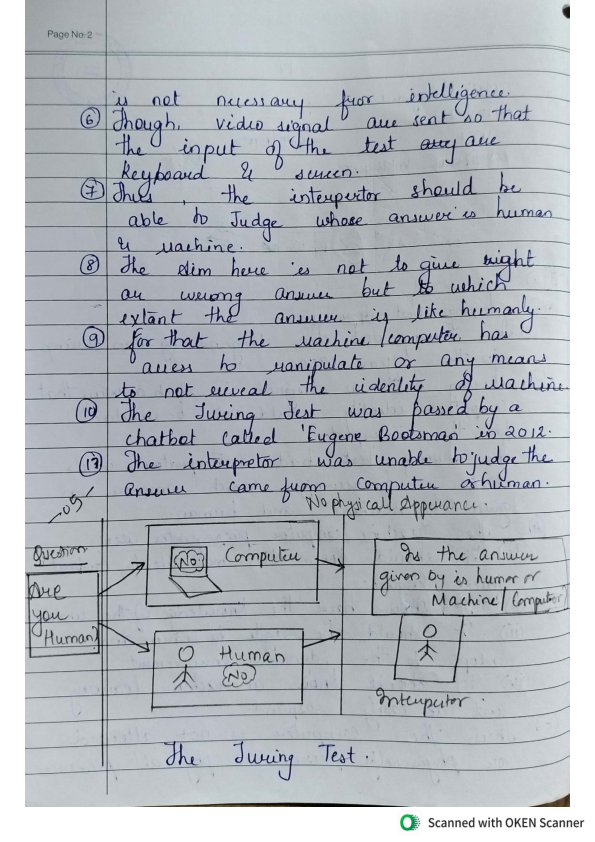 Page No: 2
is not necessary fuor intelligence.
⑥ Though, video signal are sent so that
the input of the test are
keyboard & screen.
⑦ Thus, the interpertor should be
able to Judge whose answer is human
& Machine.
⑧ The Aim here is not to give right
or wrong answer but to which
extant the answer is like humanly.
⑨ for that the Machine/computer has
access to Manipulate or any means
to not reveal the identity of Machine.
⑩ The Turing Test was passed by a
chatbot called 'Eugene Bootsman' in 2012.
⑪ The interpretor was unable to judge the
answer came from Computer or human.
No physicall Appearance.
Question
Are
you
Human?
No
Computer
Human
No
Is the answer
given by is human or
Machine/Computer
Interpertor.
The Turing Test.
Scanned with OKEN Scanner